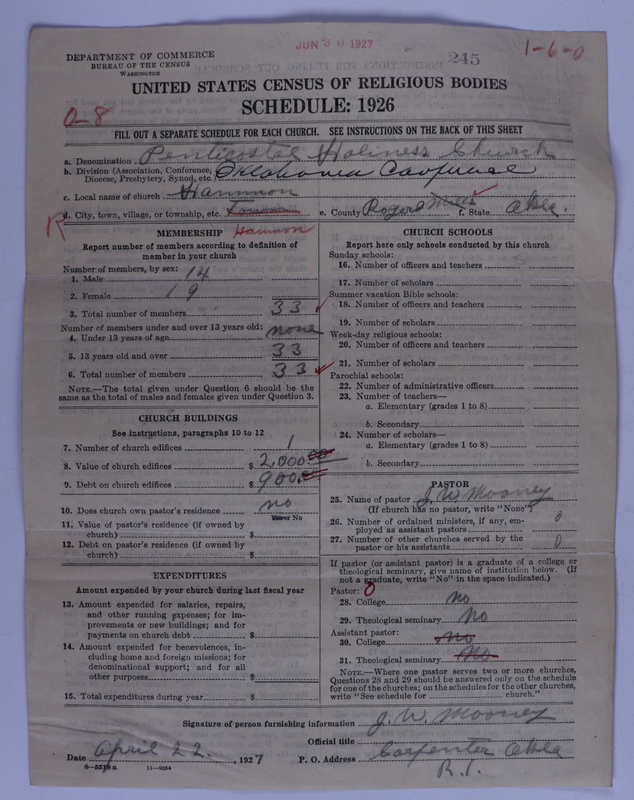 JUN 30 1927
245
1-6-0
DEPARTMENT OF COMMERCE
BUREAU OF THE CENSUS
WASHINGTON
UNITED STATES CENSUS OF RELIGIOUS BODIES
SCHEDULE: 1926
0-8
FILL OUT A SEPARATE SCHEDULE FOR EACH CHURCH. SEE INSTRUCTIONS ON THE BACK OF THIS SHEET
a. Denomination Penticostal Holiness Church
b. Division (Association, Conference, Diocese, Presbytery, Synod, etc.) Oklahoma
c. Local name of church Hammon
d. City, town, village, or township, etc. Town e. County Roger Mills f. State Okla.
R Hammon
MEMBERSHIP
Report number of members according to definition of
member in your church
Number of members, by sex:
1. Male 14
2. Female 19
3. Total number of members 33
Number of members under and over 13 years old:
4. Under 13 years of age none
5. 13 years old and over 33
6. Total number of members 33
NOTE.—The total given under Question 6 should be the
same as the total of males and females given under Question 3.
CHURCH BUILDINGS
See instructions, paragraphs 10 to 12
7. Number of church edifices 1
8. Value of church edifices $ 2,000.00
9. Debt on church edifices $ 900.00
10. Does church own pastor's residence no
Yes or No
11. Value of pastor's residence (if owned by
church) $
12. Debt on pastor's residence (if owned by
church) $
EXPENDITURES
Amount expended by your church during last fiscal year
13. Amount expended for salaries, repairs,
and other running expenses; for im-
provements or new buildings; and for
payments on church debt $
14. Amount expended for benevolences, in-
cluding home and foreign missions; for
denominational support; and for all
other purposes $
15. Total expenditures during year $
CHURCH SCHOOLS
Report here only schools conducted by this church
Sunday schools:
16. Number of officers and teachers
17. Number of scholars
Summer vacation Bible schools:
18. Number of officers and teachers
19. Number of scholars
Week-day religious schools:
20. Number of officers and teachers
21. Number of scholars
Parochial schools:
22. Number of administrative officers
23. Number of teachers—
a. Elementary (grades 1 to 8)
b. Secondary
24. Number of scholars—
a. Elementary (grades 1 to 8)
b. Secondary
PASTOR
25. Name of pastor J. W. Mooney
(If church has no pastor, write "None")
26. Number of ordained ministers, if any, em-
ployed as assistant pastors 0
27. Number of other churches served by the
pastor or his assistants 0
If pastor (or assistant pastor) is a graduate of a college or
theological seminary, give name of institution below. (If
not a graduate, write "No" in the space indicated.)
Pastor: 0
28. College no
29. Theological seminary No
Assistant pastor:
30. College No
31. Theological seminary No
NOTE.—Where one pastor serves two or more churches,
Questions 28 and 29 should be answered only on the schedule
for one of the churches; on the schedules for the other churches,
write "See schedule for church."
Signature of person furnishing information J. W. Mooney
Official title
Date April 22, 1927 P. O. Address Carpenter Okla
8-5513a 11-9954 R. 1.